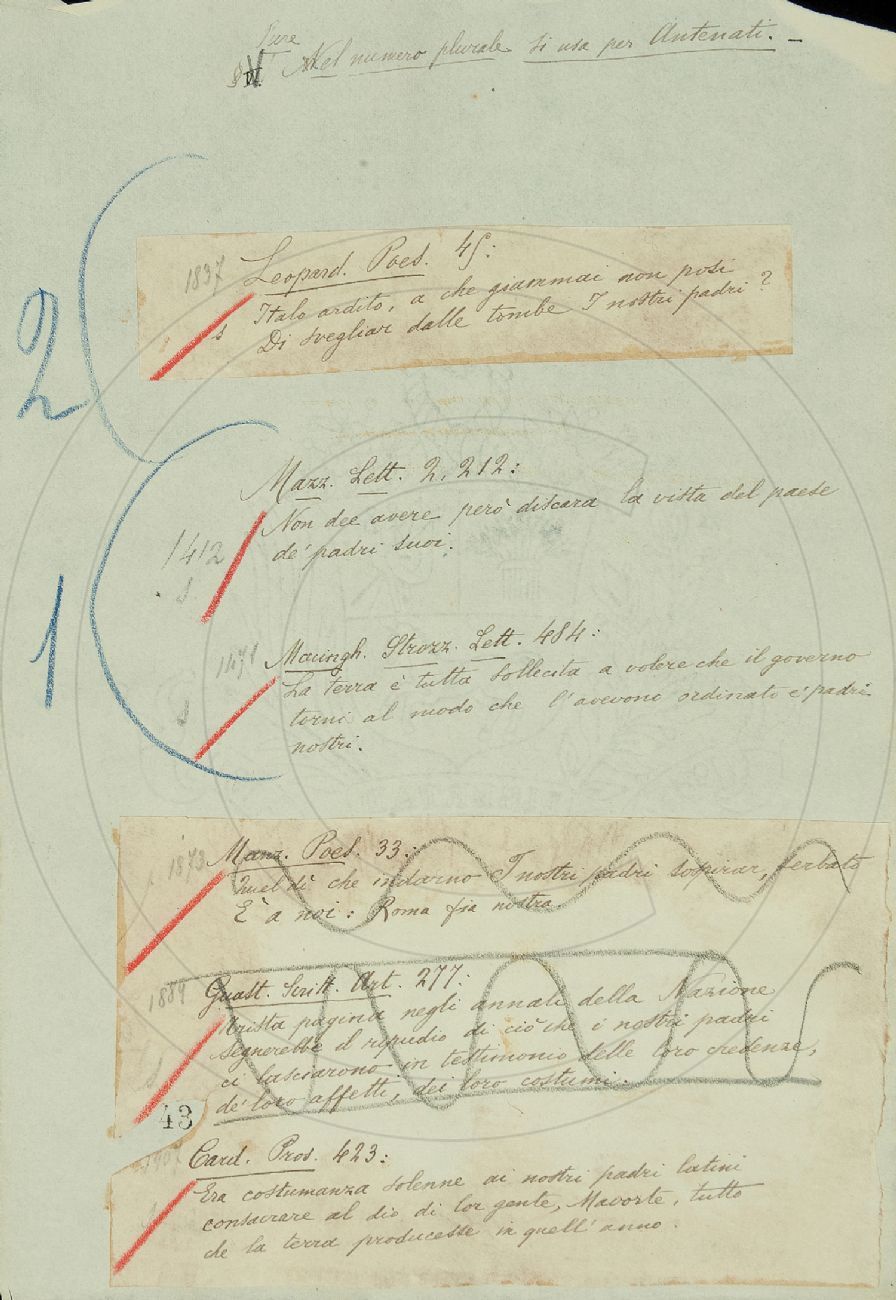 Pure
§ V Nel numero plurale si usa per Antenati. –
1837 Leopard. Poes. 45:
Italo ardito, a che giammai non posi
s Di svegliar dalle tombe I nostri padri?
2
Mazz. Lett. 2, 212:
Non dee avere però discara la vista del paese
de' padri suoi.
1412
1
1471 Macingh. Strozz. Lett. 484:
La terra è tutta sollecita a volere che il governo
torni al modo che l'avevono ordinato e' padri
nostri.
1873 Manz. Poes. 33:
Quel dì che indarno I nostri padri sospirar, serbato
È a noi: Roma fia nostra.
1889 Guast. Scritt. Art. 277:
Trista pagina negli annali della Nazione
segnerebbe il ripudio di ciò che i nostri padri
ci lasciarono in testimonio delle loro credenze,
de' loro affetti, dei loro costumi.
43
1907 Card. Pros. 423:
Era costumanza solenne ai nostri padri latini
consacrare al dio di lor gente, Mavorte, tutto
che la terra producesse in quell'anno.